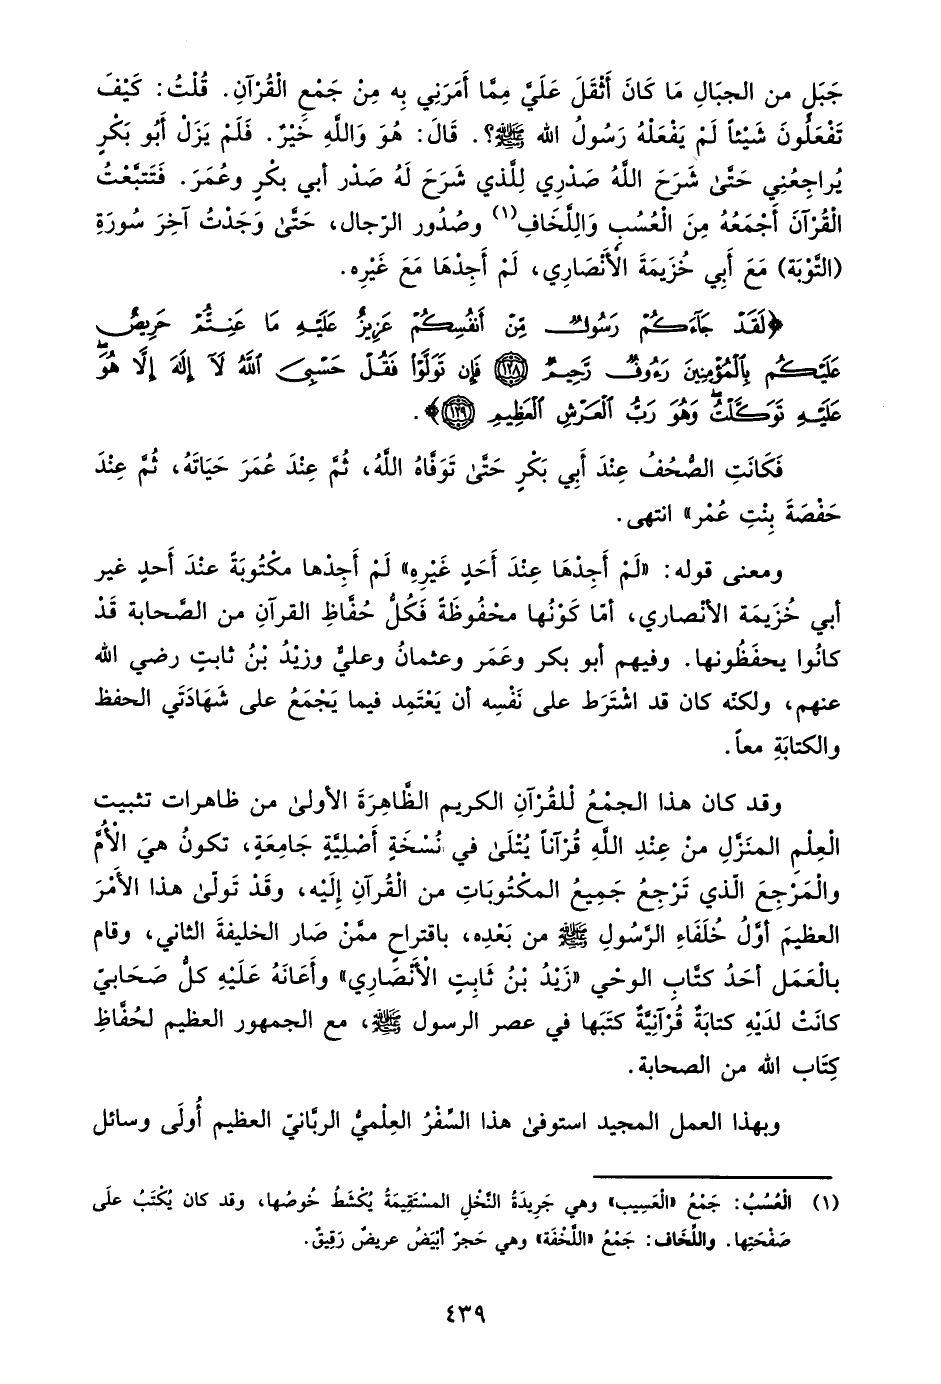 جَبَلٍ من الجبَالِ مَا كَانَ أَثْقَلَ عَلَيَّ مِمَّا أَمَرَنِي بِه مِنْ جَمْعِ الْقُرْآنِ. قُلْتُ: كَيْفَ
تَفْعَلُونَ شَيْئاً لَمْ يَفْعَلْهُ رَسُولُ الله ﷺ؟. قَالَ: هُوَ وَاللَّهِ خَيْرٌ. فَلَمْ يَزَلْ أَبُو بَكْرٍ
يُراجِعُنِي حَتَّىٰ شَرَحَ اللَّهُ صَدْرِي لِلَّذي شَرَحَ لَهُ صَدْر أبي بكْرٍ وعُمَرَ. فَتَتبَّعْتُ
الْقُرْآنَ أَجْمَعُهُ مِنَ الْعُسُبِ وَاللِّخَافِ(١) وصُدُور الرّجال، حَتَّىٰ وَجَدْتُ آخِرَ سُورَةِ
(التَّوْبَة) مَعَ أَبِي خُزِيمَةَ الأَنْصَارِي، لَمْ أَجِدْهَا مَعَ غَيْرِه.
﴿لَقَدْ جَآءَكُمْ رَسُولٌ مِّنْ أَنفُسِكُمْ عَزِيزٌ عَلَيْهِ مَا عَنِتُّمْ حَرِيصٌ
عَلَيْكُم بِالْمُؤْمِنِينَ رَءُوفٌ رَّحِيمٌ ﴿١٢٨﴾ فَإِن تَوَلَّوْا فَقُلْ حَسْبِيَ ٱللَّهُ لَآ إِلَٰهَ إِلَّا هُوَۖ
عَلَيْهِ تَوَكَّلْتُۖ وَهُوَ رَبُّ ٱلْعَرْشِ ٱلْعَظِيمِ ﴿١٢٩﴾﴾.
فَكَانَتِ الصُّحُفُ عِنْدَ أَبِي بَكْرٍ حَتَّىٰ تَوَفَّاهُ اللَّهُ، ثُمَّ عِنْدَ عُمَرَ حَيَاتَهُ، ثُمَّ عِنْدَ
حَفْصَةَ بِنْتِ عُمْر» انتهى.
ومعنى قوله: «لَمْ أَجِدْهَا عِنْدَ أَحَدٍ غَيْرِهِ» لَمْ أَجِدْها مكْتُوبَةً عندَ أحدٍ غير
أبي خُزَيمَة الأنْصاري، أمّا كَوْنُها محْفُوظَةً فَكُلُّ حُفَّاظِ القرآنِ من الصَّحابة قَدْ
كانُوا يحفَظُونها. وفيهم أبو بكر وعَمَر وعثمانُ وعليٌّ وزيْدُ بْنُ ثابتٍ رضي الله
عنهم، ولكنّه كان قد اشْتَرَط على نَفْسِه أن يَعْتَمِد فيما يَجْمَعُ على شَهَادَتَي الحفظ
والكتابَةِ معاً.
وقد كان هذا الجمْعُ لْلقُرْآنِ الكريم الظَّاهِرَةَ الأولىٰ من ظاهرات تثبيت
الْعِلْمِ المنَزَّلِ منْ عِنْدِ اللَّهِ قُرْآناً يُتْلَىٰ في نُسْخَةٍ أَصْلِيَّةٍ جَامِعَةٍ، تكونُ هيَ الأُمَّ
والْمَرْجِعَ الّذي تَرْجِعُ جَمِيعُ المكْتُوبَاتِ من الْقُرآنِ إلَيْه، وقَدْ تَولّىٰ هذا الأمْرَ
العظيمَ أوَّلُ خُلَفَاءِ الرَّسُولِ ﷺ من بَعْدِه، باقتراح ممَّنْ صَار الخليفةَ الثاني، وقام
بالْعَمَل أحَدُ كتَّابِ الوحْي «زَيْدُ بْنُ ثَابِتٍ الأَنْصَارِي» وأَعَانَهُ عَلَيْهِ كلُّ صَحَابيّ
كانَتْ لدَيْهِ كتابَةٌ قُرْآنِيَّةٌ كتَبَها في عصر الرسول ﷺ، مع الجمهور العظيم لحُفَّاظِ
كِتَاب الله من الصحابة.
وبهذا العمل المجيد استوفىٰ هذا السِّفْرُ العِلْميُّ الربَّانيّ العظيم أُولَى وسائل
(١) الْعُسُبُ: جَمْعُ «الْعَسِيب» وهي جَرِيدَةُ النَّخْلِ المسْتَقِيمَةُ يُكْشَطُ خُوصُها، وقد كان يُكْتَبُ علَى
صَفْحَتِها. واللِّخَاف: جَمْعُ «اللَّخْفَة» وهي حَجرٌ أبْيَضُ عريضٌ رَقِيقٌ.
٤٣٩